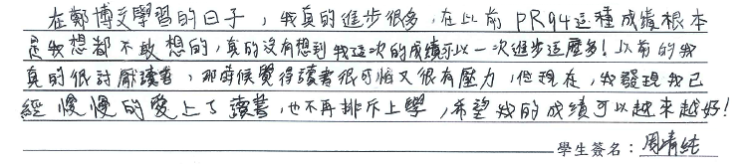 在鄭博文學習的日子，我真的進步很多，在以前PR94這種成績根本
是我想都不敢想的，真的沒有想到我這次的成績可以一次進步這麼多！以前的我
真的很討厭讀書，那時候覺得讀書很可怕又很有壓力，但現在，我發現我已
經慢慢的愛上了讀書，也不再排斥上學，希望我的成績可以越來越好！
學生簽名：周靖純